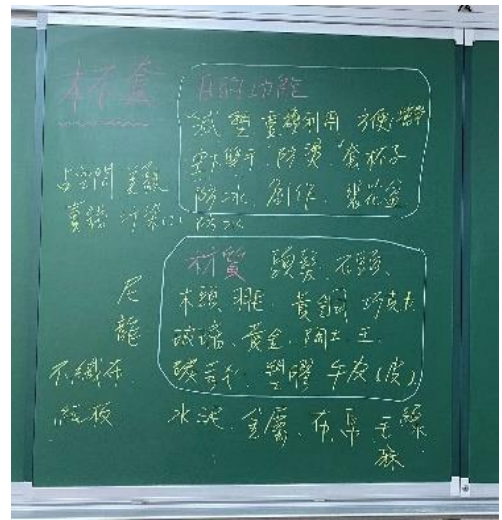 杯套
目的功能
減塑 重複利用 方便攜帶
空出雙手 防燙 套杯子
防冰 創作 裝花盆
占空間 美觀
防水
材質 頭髮 石頭
木頭 黃銅 巧克力
玻璃、黃金、陶土、土
碳 塑膠 牛皮(皮)
尼龍
不織布
紙板
水泥 金屬、布、帛、毛線